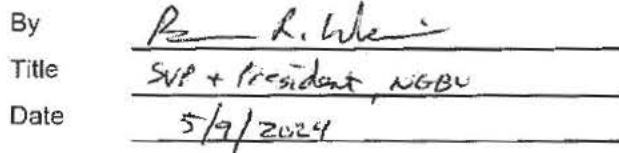 By R.
Title SVP + President, NGBU
Date 5/9/2024